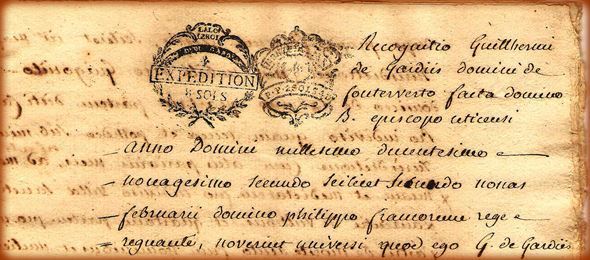 EXPEDITION
Recognitio Guillhermi
de Gardiis domini de
fonterverto facta domino
B. episcopo uticensi
anno Domini millesimo ducentesimo
nonagesimo secundo scilicet secundo nonas
februarii domino philippo francorum rege
regnante, noverint universi quod ego G. de Gardiis